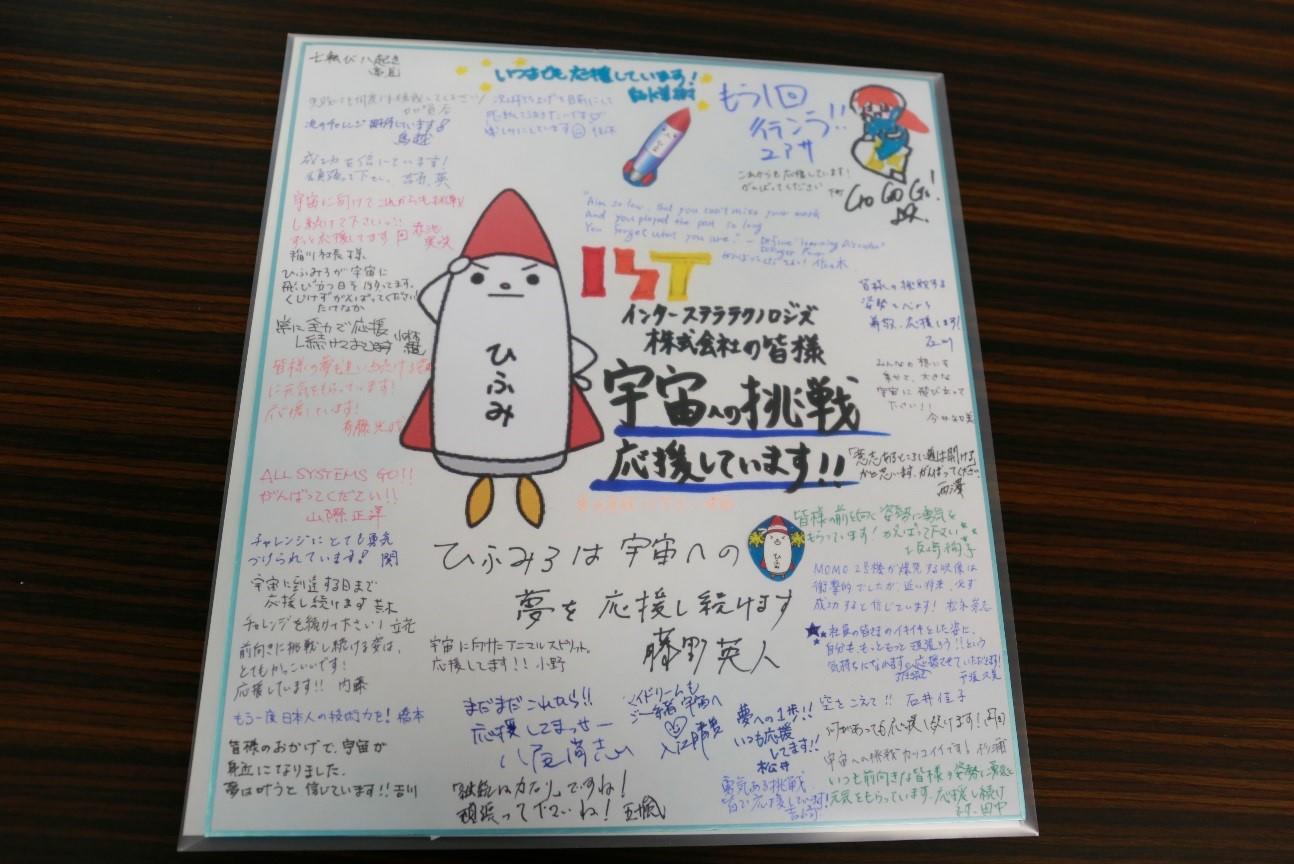 七転び八起き
いつまでも応援しています!
もう1回
イテンラ!!
ユアサ
次のチャレンジ期待しています!
鳥越
成功を信じています!
頑張って下さい
これからも応援しています!
がんばってください 下町
Go Go Go!
宇宙に向けてこれからも挑戦
し続けて下さいっ!!
ずっと応援してます
稲川社長様、
ひふみろが宇宙に
飛び立つ日を祈ってます。
くじけずがんばってください
たけなか
常に全力で応援
し続けております
皆様の夢を追い続ける姿
に元気をもらっています!
応援しています!
"Aim so low, But you can't miss your mark
And you played the part so long
You forget what you are."
がんばってください! 佐々木
IST
インターステラテクノロジズ
株式会社の皆様
宇宙への挑戦
応援しています!!
ひふみ
皆様の挑戦する
尊敬、応援します!
みんなの想いを
乗せて、大きな
宇宙に飛び立って
下さい!!
「意志あるところに道は開ける」
かと思います。がんばってください
西澤
ALL SYSTEMS GO!!
がんばってください!!
山際正洋
チャレンジにとても勇気
づけられています! 関
宇宙に到達する日まで
応援し続けます 荒木
チャレンジを続けて下さい! 立花
前向きに挑戦し続ける姿は、
とてもかっこいいです!
応援しています!! 内藤
もう一度日本人の技術力を! 橋本
皆様のおかげで、宇宙が
身近になりました。
夢は叶うと信じています!! 吉川
ひふみろは宇宙への
夢を応援し続けます
藤野英人
ひふみ
皆様の前を向く姿勢に勇気を
もらっています! がんばって下さい
MOMO 2号機が爆発する映像は
衝撃的でしたが、近い将来、必ず
成功すると信じています! 松永崇志
社員の皆様のイキイキとした姿に、
自分も、もっともっと頑張ろう!!という
気持ちになれます。応援させていただきます!
宇宙に向けたアニマルスピリット。
応援してます!! 小野
まだまだこれから!!
応援してまっせー
八尾尚志
マイドリームも
宇宙へ
夢への1歩!!
いつも応援
してます!!
松井
勇気ある挑戦
皆で応援しています!
「継続は力なり」ですね!
頑張って下さいね! 五十嵐
空をこえて!! 石井佳子
何があっても応援し続けます!
宇宙への挑戦カッコイイです! 杉浦
いつも前向きな皆様の姿勢に勇気と
元気をもらっています。応援し続け
ます。田中